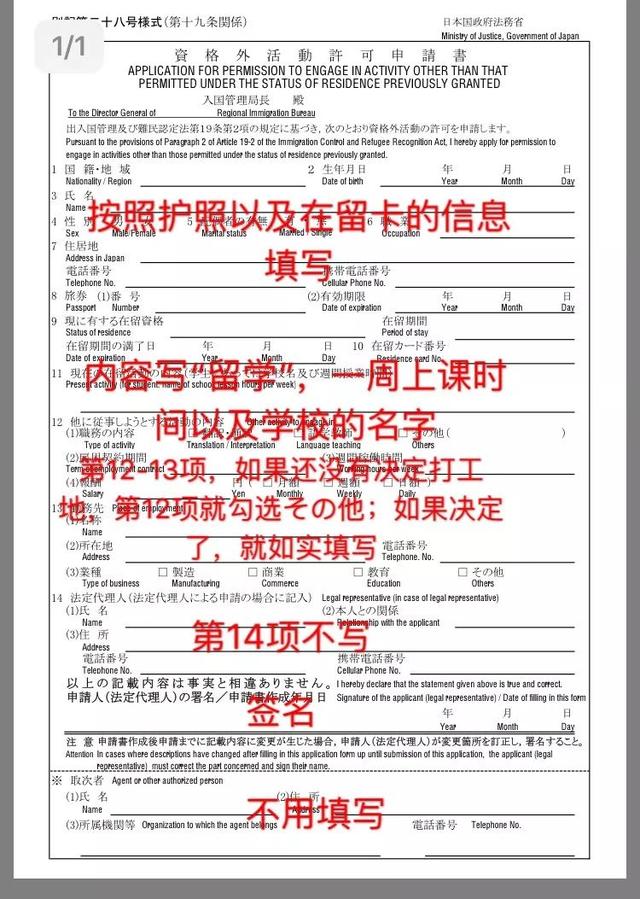 二十八号様式(第十九条関係)
日本国政府法務省
1/1
Ministry of Justice, Government of Japan
資格外活動許可申請書
APPLICATION FOR PERMISSION TO ENGAGE IN ACTIVITY OTHER THAN THAT
PERMITTED UNDER THE STATUS OF RESIDENCE PREVIOUSLY GRANTED
入国管理局長 殿
To the Director General of Regional Immigration Bureau
出入国管理及び難民認定法第19条第2項の規定に基づき,次のとおり資格外活動の許可を申請します。
Pursuant to the provisions of Paragraph 2 of Article 19-2 of the Immigration Control and Refugee Recognition Act, I hereby apply for permission to
engage in activities other than those permitted under the status of residence previously granted.
1 国籍・地域 2 生年月日 年 月 日
Nationality / Region Date of birth Year Month Day
3 氏名
Name
按照护照以及在留卡的信息
4 性 5 6 職
Sex Male/Female Marital status Married Single Occupation
7 住居地
Address in Japan
填写
電話番号 携帯電話番号
Telephone No. Cellular Phone No.
8 旅券 (1)番号 (2)有効期限 年 月 日
Passport Number Date of expiration Year Month Day
9 現に有する在留資格 在留期間
Status of residence Period of stay
在留期間の満了日 年 月 日 10 在留カード番号
Date of expiration Year Month Day Residence card No.
内容写“留学”,一周上课时
11
12 他に従事しようとする活動の内容 Other activity to engage in
间以及学校的名字
(1)職務の内容 □その他( )
Type of activity Translation / Interpretation Language teaching Others
第12-13项,如果还没有决定打工
(4)
Salary Yen Monthly Weekly Daily
地,第12项就勾选その他;如果决定
13
(1)名称
Name
了,就如实填写
(2)所在地 電話番号
Address Telephone. No.
(3)業種 □ 製造 □ 商業 □ 教育 □ その他
Type of business Manufacturing Commerce Education Others
14 法定代理人(法定代理人による申請の場合に記入) Legal representative (in case of legal representative)
(1)氏名 (2)本人との関係
Name Relationship with the applicant
第14项不写
(3)住所
Address
電話番号 携帯電話番号
Telephone No. Cellular Phone No.
以上の記載内容は事実と相違ありません。 I hereby declare that the statement given above is true and correct.
申請人(法定代理人)の署名/申請書作成年月日 Signature of the applicant (legal representative) / Date of filling in this form
签名
年 月 日
Year Month Day
注意 申請書作成後申請までに記載内容に変更が生じた場合,申請人(法定代理人)が変更箇所を訂正し,署名すること。
Attention In cases where descriptions have changed after filling in this application form up until submission of this application, the applicant (legal
representative) must correct the part concerned and sign their name.
※ 取次者 Agent or other authorized person
(1)氏名 (2)住所
Name Address
不用填写
(3)所属機関等 Organization to which the agent belongs 電話番号 Telephone No.